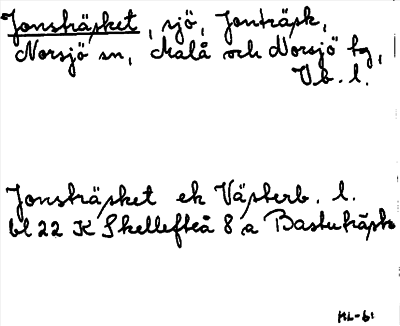 Jonsträsket, sjö, Jonträsk,
Norsjö sn, Malå och Norsjö tg,
Vb. l.
Jonsträsket ek Västerb. l.
bl 22 K Skellefteå 8 a Bastuträsk